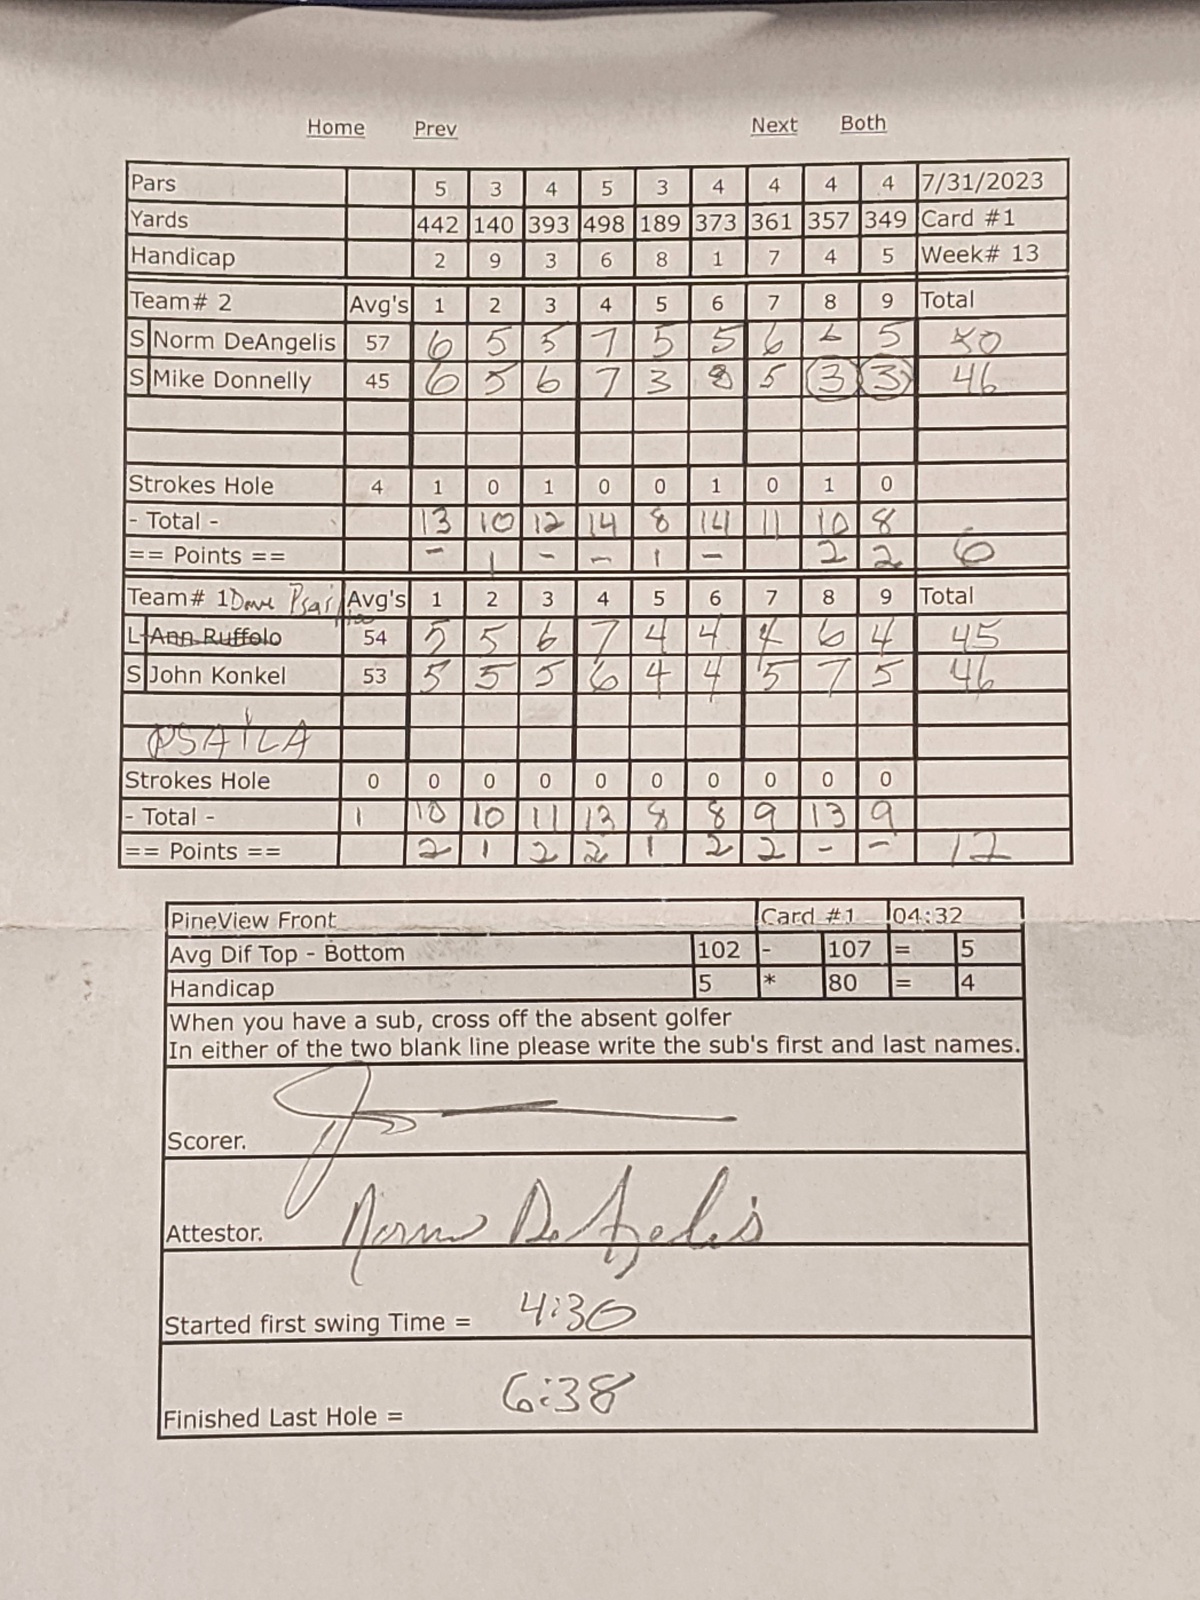 Home Prev Next Both
Pars 5 3 4 5 3 4 4 4 4 7/31/2023
Yards 442 140 393 498 189 373 361 357 349 Card #1
Handicap 2 9 3 6 8 1 7 4 5 Week# 13
Team# 2 Avg's 1 2 3 4 5 6 7 8 9 Total
S Norm DeAngelis 57 6 5 5 7 5 5 6 5 50
S Mike Donnelly 45 6 5 6 7 3 8 5 3 3 46
Strokes Hole 4 1 0 1 0 0 1 0 1 0
- Total - 13 10 12 14 8 14 11 10 8
== Points == - 1 - - 1 - 2 2 6
Team# 1 Dave Avg's 1 2 3 4 5 6 7 8 9 Total
L Ann Ruffolo 54 5 5 6 7 4 4 4 6 4 45
S John Konkel 53 5 5 5 6 4 4 5 7 5 46
PSAILA
Strokes Hole 0 0 0 0 0 0 0 0 0 0
- Total - 1 10 10 11 13 8 8 9 13 9
== Points == 2 1 2 2 1 2 2 - - 12
PineView Front Card #1 04:32
Avg Dif Top - Bottom 102 - 107 = 5
Handicap 5 * 80 = 4
When you have a sub, cross off the absent golfer
In either of the two blank line please write the sub's first and last names.
Scorer.
Attestor. Norm DeAngelis
Started first swing Time = 4:30
Finished Last Hole = 6:38